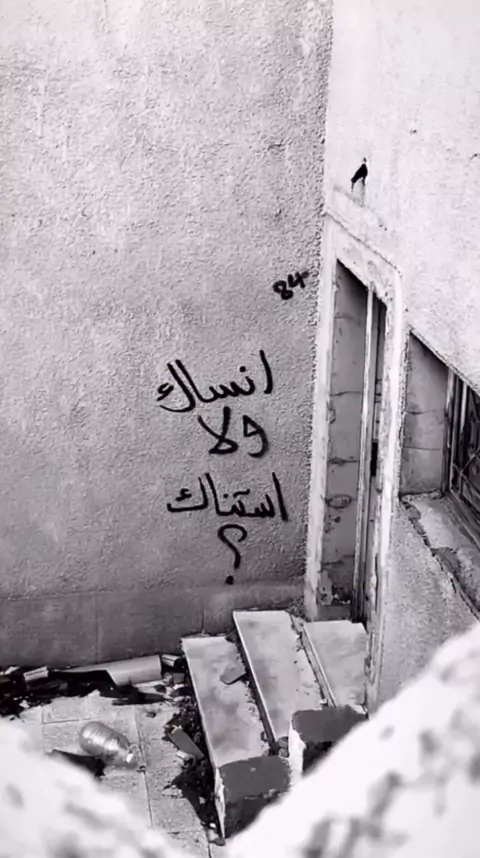 84
انساك
ولا
استناك
؟